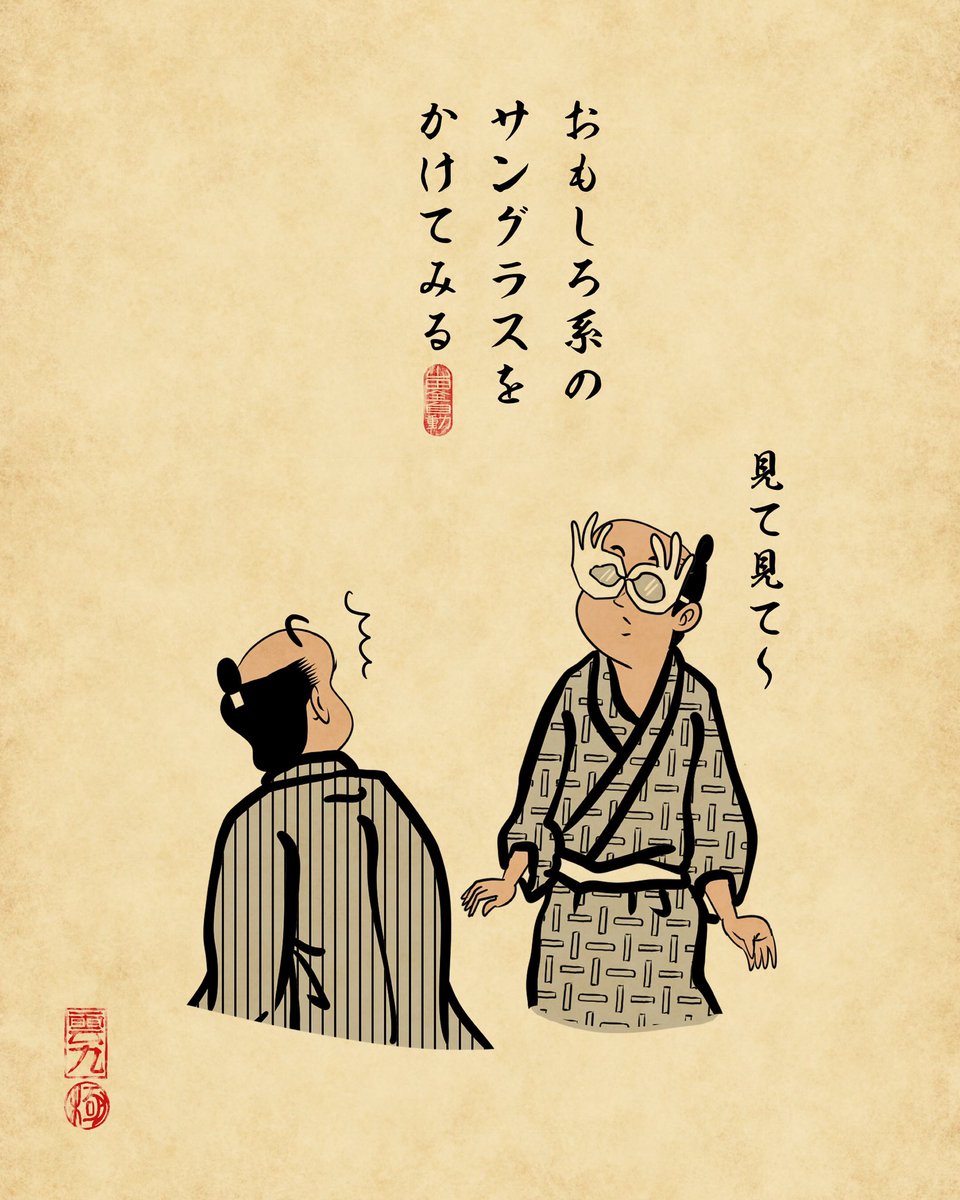 おもしろ系の
サングラスを
かけてみる
見て見て〜